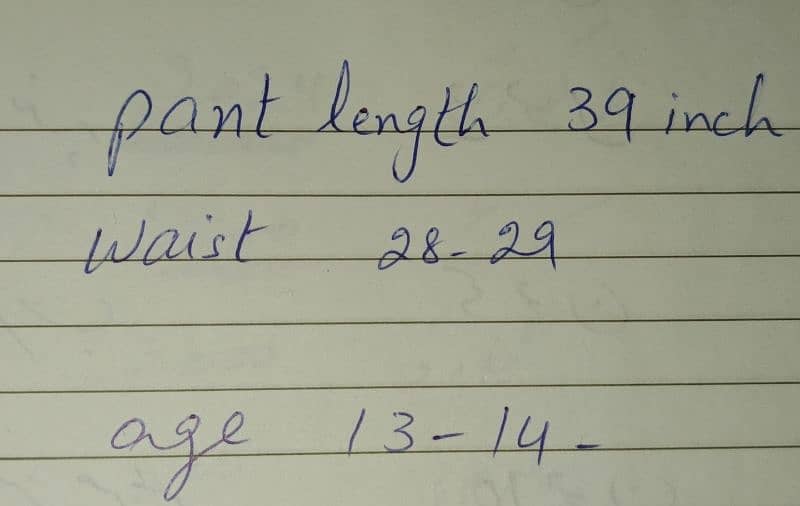 pant length 39 inch
Waist 28-29
age 13-14-